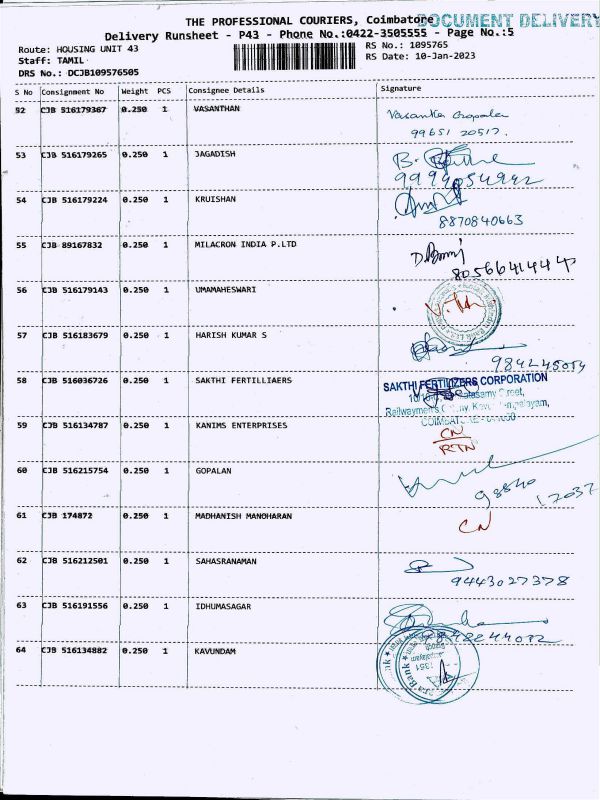 THE PROFESSIONAL COURIERS, Coimbatore
DOCUMENT DELIVERY
Delivery Runsheet - P43 - Phone No.:0422-3505555 - Page No.:5
Route: HOUSING UNIT 43
RS No.: 1095765
Staff: TAMIL
RS Date: 10-Jan-2023
DRS No.: DCJB109576505
S No Consignment No Weight PCS Consignee Details Signature
52 CJB 516179367 0.250 1 VASANTHAN
99651 20517.
53 CJB 516179265 0.250 1 JAGADISH
54 CJB 516179224 0.250 1 KRUISHAN
8870840663
55 CJB 89167832 0.250 1 MILACRON INDIA P.LTD
8056641444
56 CJB 516179143 0.250 1 UMAMAHESWARI
57 CJB 516183679 0.250 1 HARISH KUMAR S
58 CJB 516036726 0.250 1 SAKTHI FERTILLIAERS
SAKTHI FERTILIZERS CORPORATION
59 CJB 516134787 0.250 1 KANIMS ENTERPRISES
CN
RTN
60 CJB 516215754 0.250 1 GOPALAN
61 CJB 174872 0.250 1 MADHANISH MANOHARAN
CN
62 CJB 516212501 0.250 1 SAHASRANAMAN
9443027378
63 CJB 516191556 0.250 1 IDHUMASAGAR
64 CJB 516134882 0.250 1 KAVUNDAM